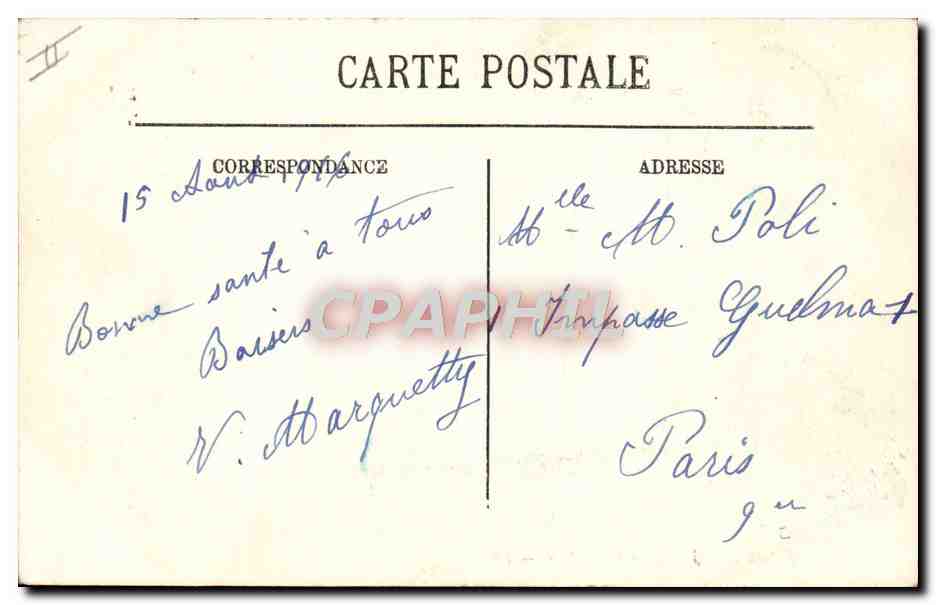 II
CARTE POSTALE
CORRESPONDANCE
15 Aout
Bonne santé à tous
Baisers
V. Marquetty
ADRESSE
Mlle M. Poli
Impasse Guelma
Paris
CPAPHIL